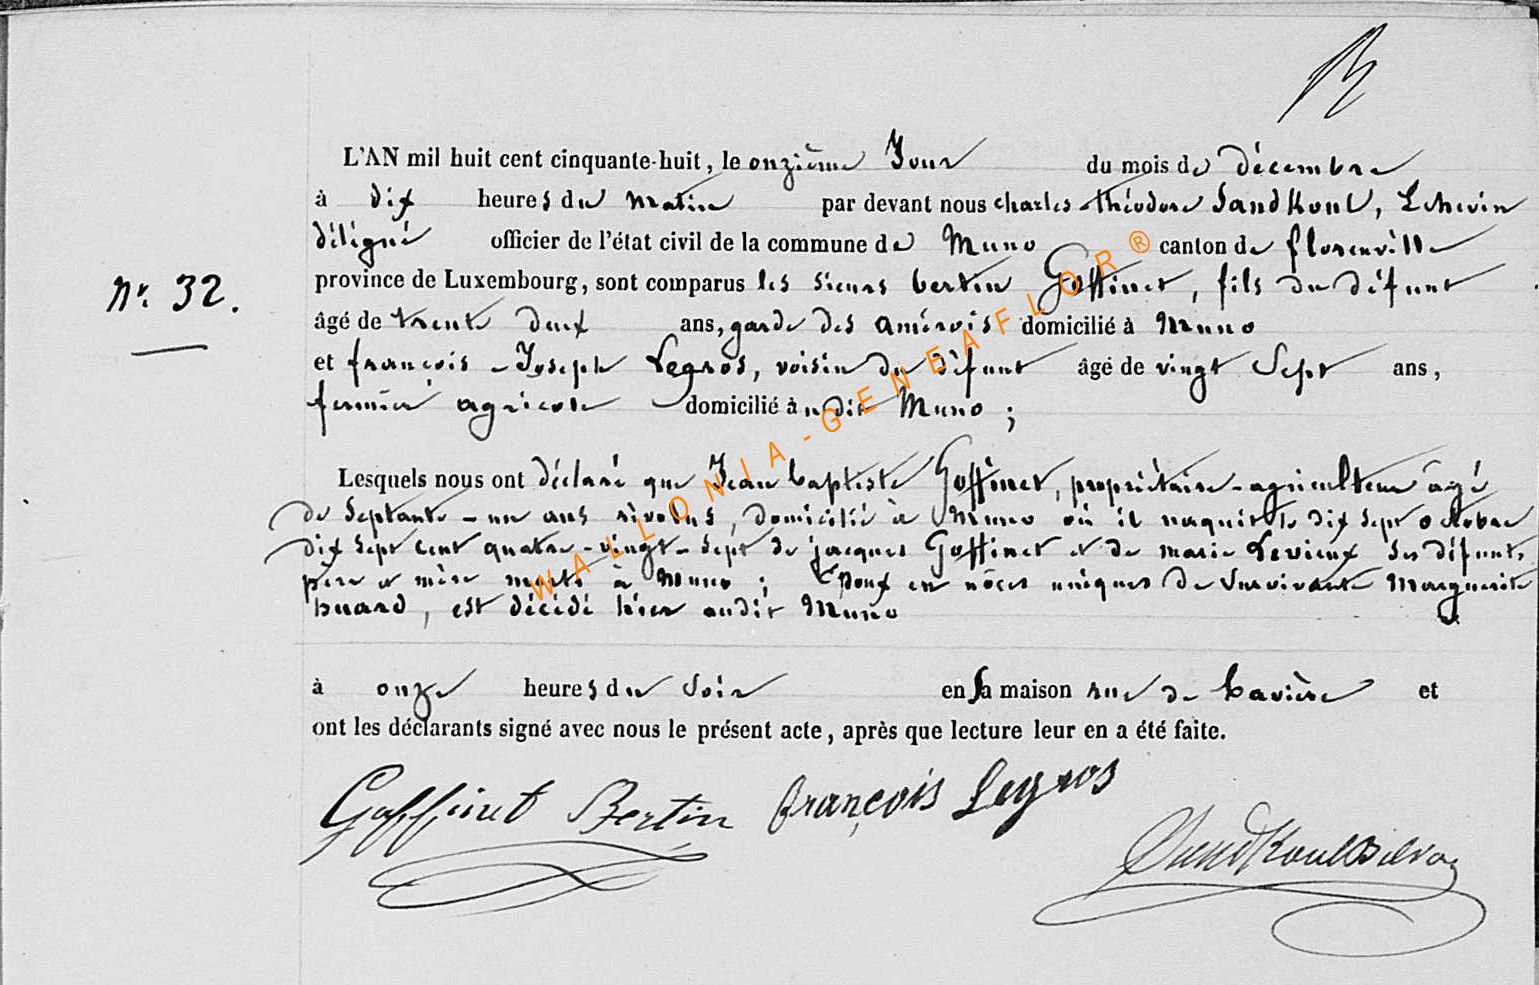 L'AN mil huit cent cinquante-huit, le onzième Jour du mois de décembre
à dix heures du matin par devant nous charles-théodore Sandkoul, Echevin
délégué officier de l'état civil de la commune de Muno canton de florenville
province de Luxembourg, sont comparus les sieurs bertin Goffinet, fils du défunt
Nr. 32.
âgé de trente deux ans, garde des amérois domicilié à Muno
et françois-Joseph Legros, voisin du défunt âgé de vingt Sept ans,
fermier agricole domicilié à udit Muno;
Lesquels nous ont déclaré que Jean baptiste Goffinet, propriétaire-agriculteur âgé
de Septante-un ans révolus, domicilié à Muno où il naquit le dix sept octobre
dix sept cent quatre-vingt-sept de jacques Goffinet et de marie Levieux ses défunts
père et mère morts à Muno; Epoux en nôces uniques de Survivante Marguerite
huard, est décédé hier audit Muno
à onze heures du Soir en Sa maison rue de bavière et
ont les déclarants signé avec nous le présent acte, après que lecture leur en a été faite.
Goffinet Bertin françois Legros
WALLONIA-GENEAFLOR®